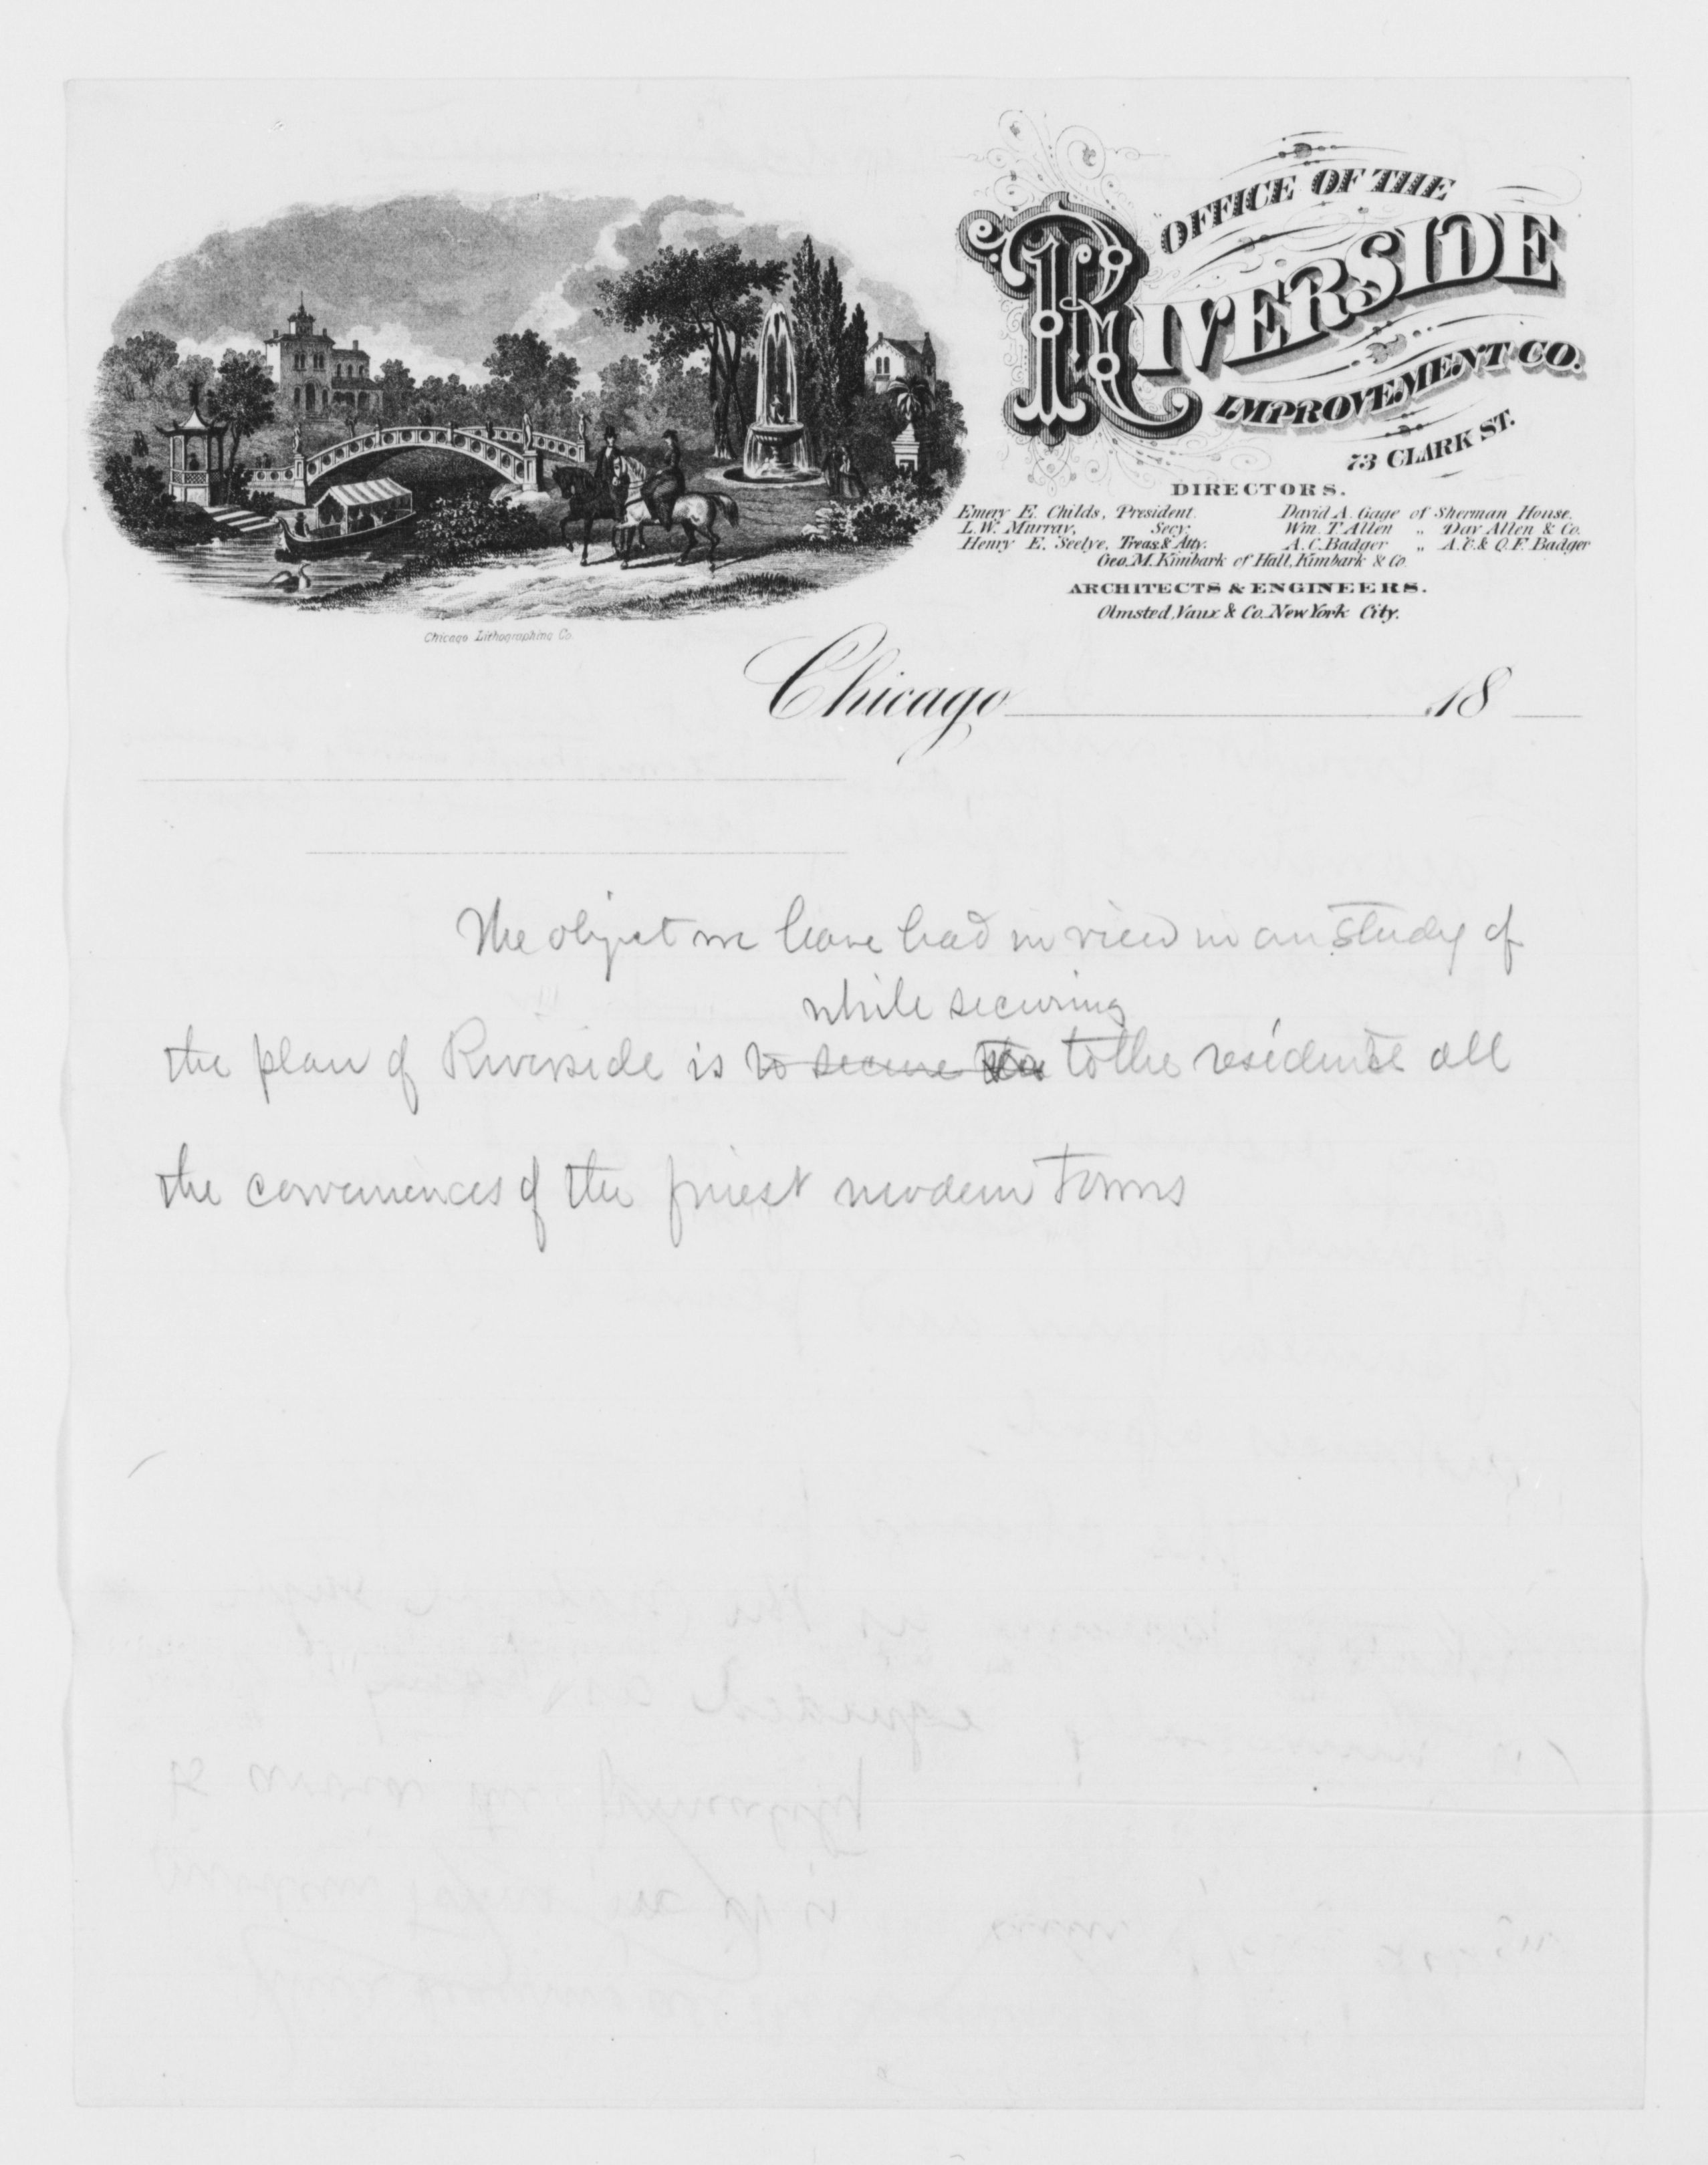 OFFICE OF THE
RIVERSIDE
IMPROVEMENT CO.
73 CLARK ST.
DIRECTORS.
Emery E. Childs, President. David A. Gage of Sherman House.
L. W. Murray, Secy. Wm. T. Allen „ Day Allen & Co.
Henry E. Seelye, Treas. & Atty. A. C. Badger „ A. C. & O. F. Badger
Geo. M. Kimbark of Hall, Kimbark & Co.
ARCHITECTS & ENGINEERS.
Olmsted, Vaux & Co. New York City.
Chicago Lithographing Co.
Chicago 18
The object we have had in view in our study of
while securing
the plan of Riverside is to secure to the residents all
the conveniences of the finest modern towns